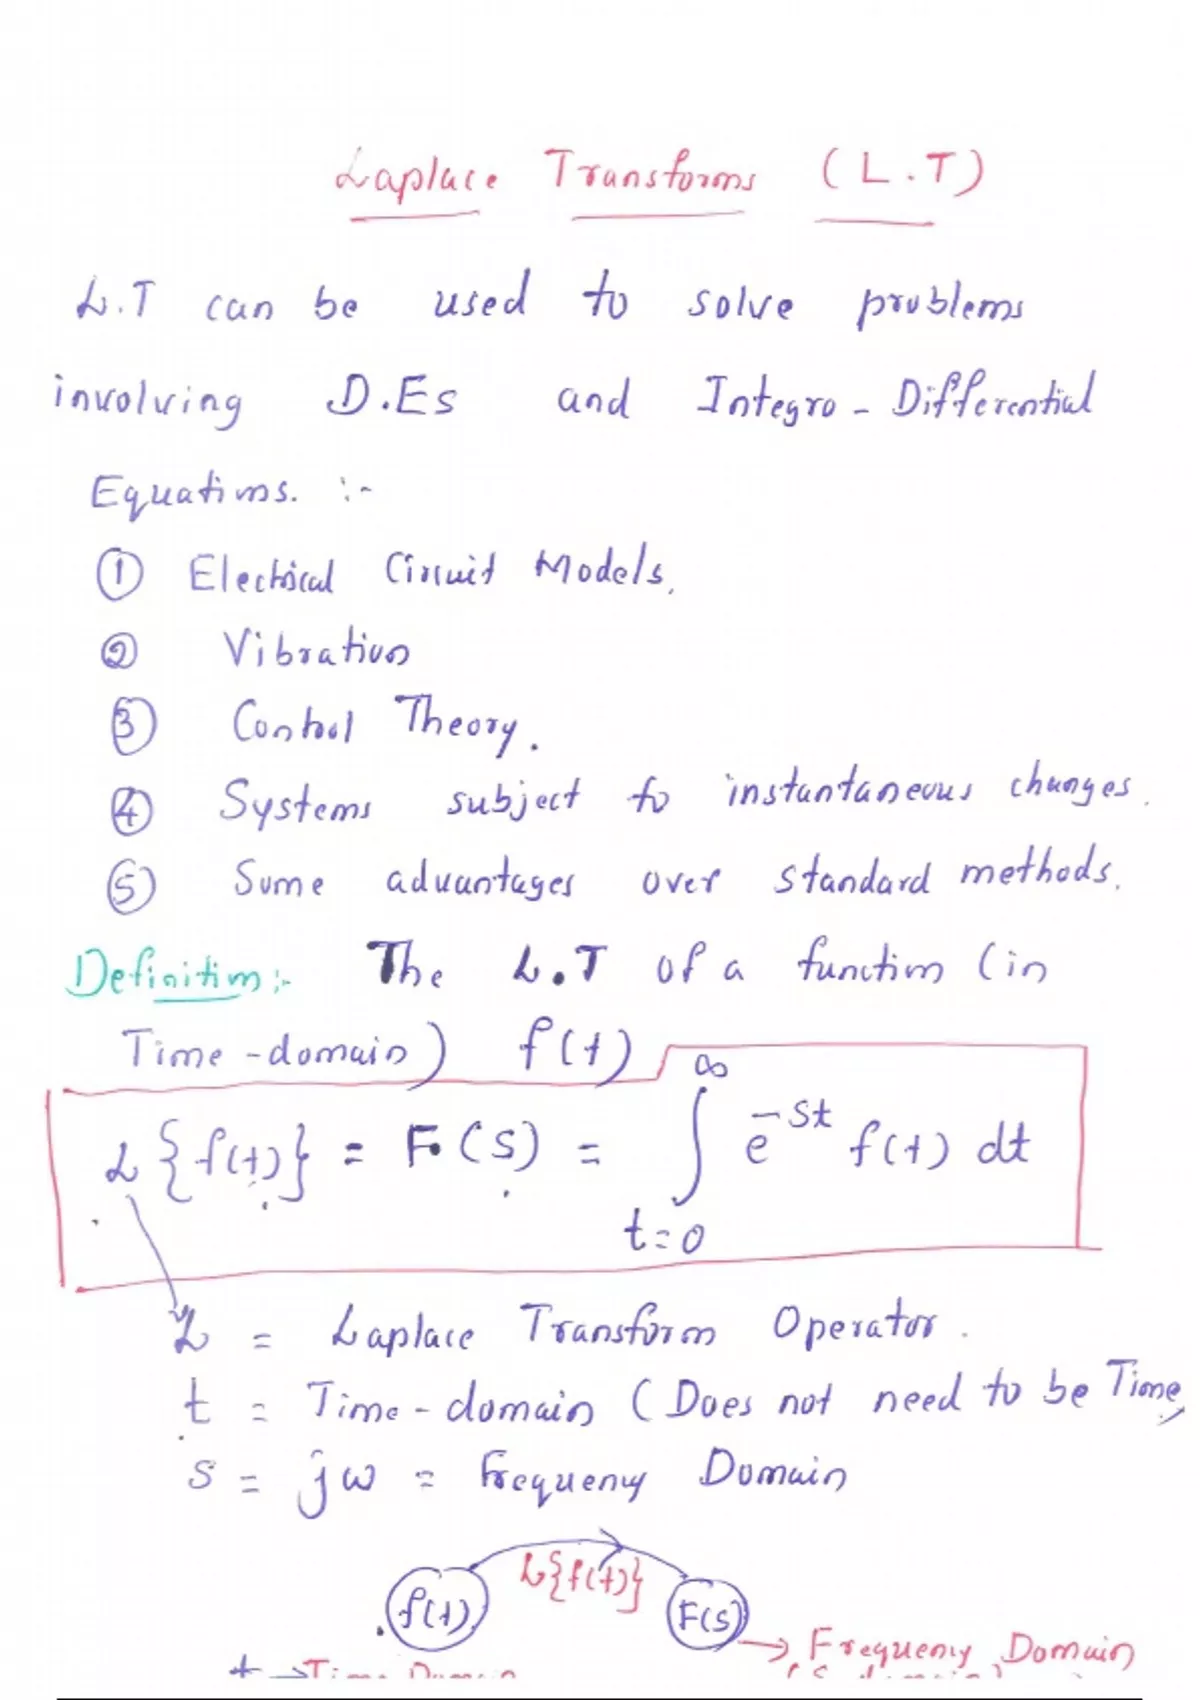 Laplace Transforms (L.T)
L.T can be used to solve problems
involving D.Es and Integro-Differential
Equations. :-
① Electrical Circuit Models.
② Vibration
③ Control Theory.
④ Systems subject to instantaneous changes.
⑤ Some advantages over standard methods.
Definition:- The L.T of a function (in
Time-domain) f(t)
ℒ{f(t)} = F(s) = ∫_{t=0}^{∞} e^{-st} f(t) dt
ℒ = Laplace Transform Operator.
t = Time-domain (Does not need to be Time,
s = jω = Frequency Domain
ℒ{f(t)}
f(t) F(s)
→ Frequency Domain
t → Time Domain (S domain)